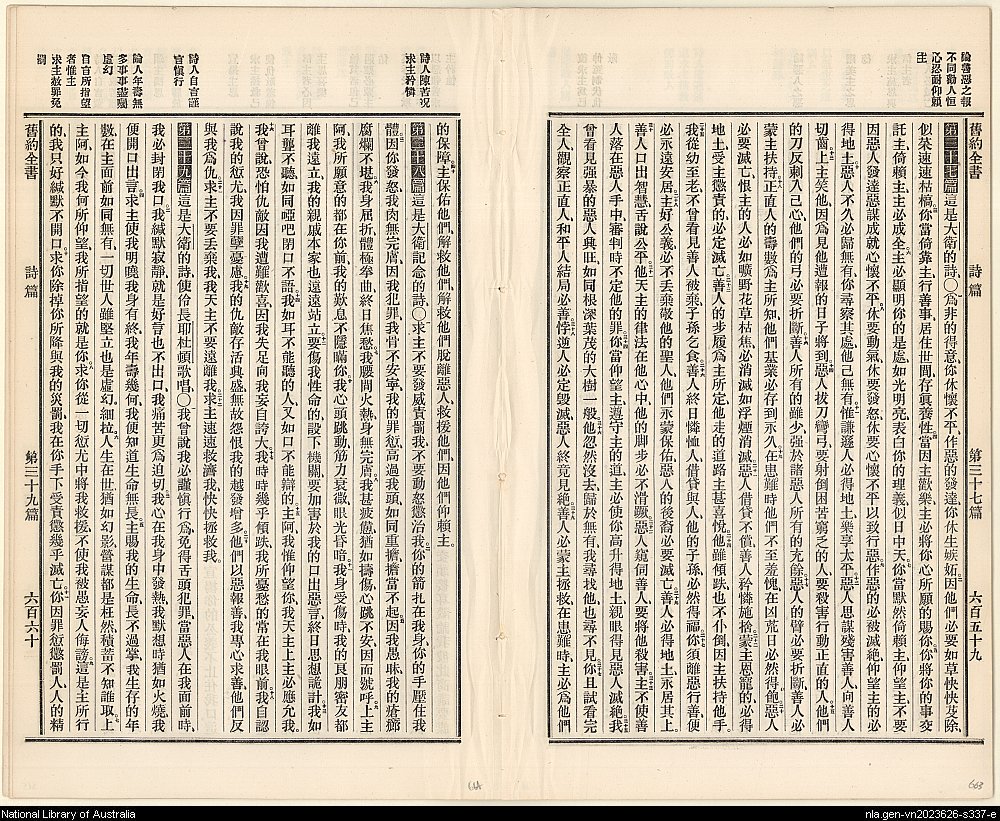 論善惡之報
不同勸人恒
心忍耐仰賴
主
舊約全書 詩篇 第三十七篇 六百五十九
第三十七篇這是大衛的詩、○爲非的得意、你休懷不平、作惡的發達、你休生嫉妬、因他們必要如草快快芟除、
似菜速速枯槁、你當倚靠主、行善事、居住世間、存眞養性、當因主歡樂、主必將你心所願的賜你、你將你的事交
託主、倚賴主、主必成全、主必顯明你的是處、如光明亮、表白你的理義、似日中天、你當默然倚賴主、仰望主、不要
因惡人發達、惡謀成就、心懷不平、休要動氣、休要發怒、休要心懷不平、以致行惡、作惡的必被滅絕、仰望主的必
得地土、惡人不久必歸無有、你尋察其處、他已無有、惟謙遜人必得地土、樂享太平、惡人思謀殘害善人、向善人
切齒、主笑他、因爲見他遭報的日子將到、惡人拔刀彎弓、要射倒困苦窮乏的人、要殺害行動正直的人、他們
的刀反刺入己心、他們的弓必要折斷、善人所有的雖少、强於諸惡人所有的充餘、惡人的臂必要折斷、善人必
蒙主扶持、正直人的壽數、爲主所知、他們基業必存到永久、在患難時他們不至羞愧、在凶荒日必然得飽、惡人
必要滅亡、恨主的人必如曠野花草枯焦、必消滅如浮煙消滅、惡人借貸不償、善人矜憐施捨、蒙主恩寵的必得
地土、受主懲責的必定滅亡、善人的步履爲主所定、他走的道路主甚喜悅、他雖傾跌也不仆倒、因主扶持他手、
我從幼至老、不曾看見善人被棄、子孫乞食、善人終日憐恤人、借貸與人、他的子孫必然得福、你須離惡行善、便
必永遠安居、主好公義、必不丟棄敬他的聖人、他們永蒙保佑、惡人的後裔必要滅亡、善人必得地土、永居其上、
善人口出智慧、舌說公平、他天主的律法在他心中、他的脚步必不滑蹶、惡人窺伺善人、要將他殺害、主不使善
人落在惡人手中、審判時不定他的罪、你當仰望主、遵守主的道、主必使你高升得地土、親眼得見惡人滅絕、我
曾看見强暴的惡人興旺、如同根深葉茂的大樹一般、他忽然沒去、歸於無有、我尋找他也尋不見、你且試看完
全人、觀察正直人、和平人結局必善、悖逆人必定毀滅、惡人終竟見絕、善人必蒙主拯救、在患難時主必爲他們
詩人陳苦况
求主矜憐
詩人自言謹
言愼行
論人年壽無
多事事盡屬
虛幻
自言所指望
者惟主
求主赦罪免
罰
的保障、主保佑他們、解救他們、解救他們脫離惡人、救援他們、因他們仰賴主、
第三十八篇這是大衛記念的詩、○求主不要發威責罰我、不要動怒懲治我、你的箭扎在我身、你的手壓住我
體、因你發怒、我肉無完膚、因我犯罪、我骨不安寧、我的罪愆高過我頭、如同重擔、擔當不起、因我愚昧、我的瘡癤
腐爛不堪、我身屈折、體極拳曲、終日焦愁、我腰間火熱、身無完膚、我甚疲憊、猶如擣傷、心跳不安、因而號呼、主
阿、我所願意的都在你前、我的歎息不隱瞞你、我心頭跳動、筋力衰微、眼光昏暗、我身受傷時、我的良朋密友都
離我遠立、我的親戚本家也遠遠站立、要傷我性命的、設下機關、要加害於我的、口出惡言、終日思想詭計、我如
耳聾不聽、如同啞吧閉口不語、我如耳不能聽的人、又如口不能辯的、主阿、我惟仰望你、我天主、主必應允我、
我曾說、恐怕仇敵因我遭難歡喜、因我失足、向我妄自誇大、我時時幾乎傾跌、我所憂愁的常在我眼前、我自認
說我的愆尤、我因罪孽憂慮、我的仇敵存活興盛、無故怨恨我的越發增多、他們以惡報善、我專心求善、他們反
與我爲仇、求主不要丟棄我、我天主不要遠離我、求主速速救濟我、快快拯救我、
第三十九篇這是大衛的詩、使伶長耶杜頓歌唱、○我曾說、我必謹愼行爲、免得舌頭犯罪、當惡人在我面前時、
我必封閉我口、我緘默寂靜、就是好言也不出口、我痛苦更爲迫切、我心在我身中發熱、我默想時猶如火燒、我
便開口出言、求主使我明曉我身有終、我年壽幾何、我便知道生命無長、主賜我的生命長不過掌、我生存的年
數在主面前如同無有、一切世人雖堅立也是虛幻、細拉人生在世猶如幻影、營謀都是枉然、積蓄不知誰取上
主阿、如今我何所仰望、我所指望的就是你、求你從一切愆尤中將我救援、不使我被愚妄人侮謗、這是主所行
的、我只好緘默不開口、求你除掉你所降與我的災罰、我在你手下受責懲、幾乎滅亡、你因罪愆懲罰人、人的精
舊約全書 詩篇 第三十九篇 六百六十
National Library of Australia
nla.gen-vn2023626-s337-e